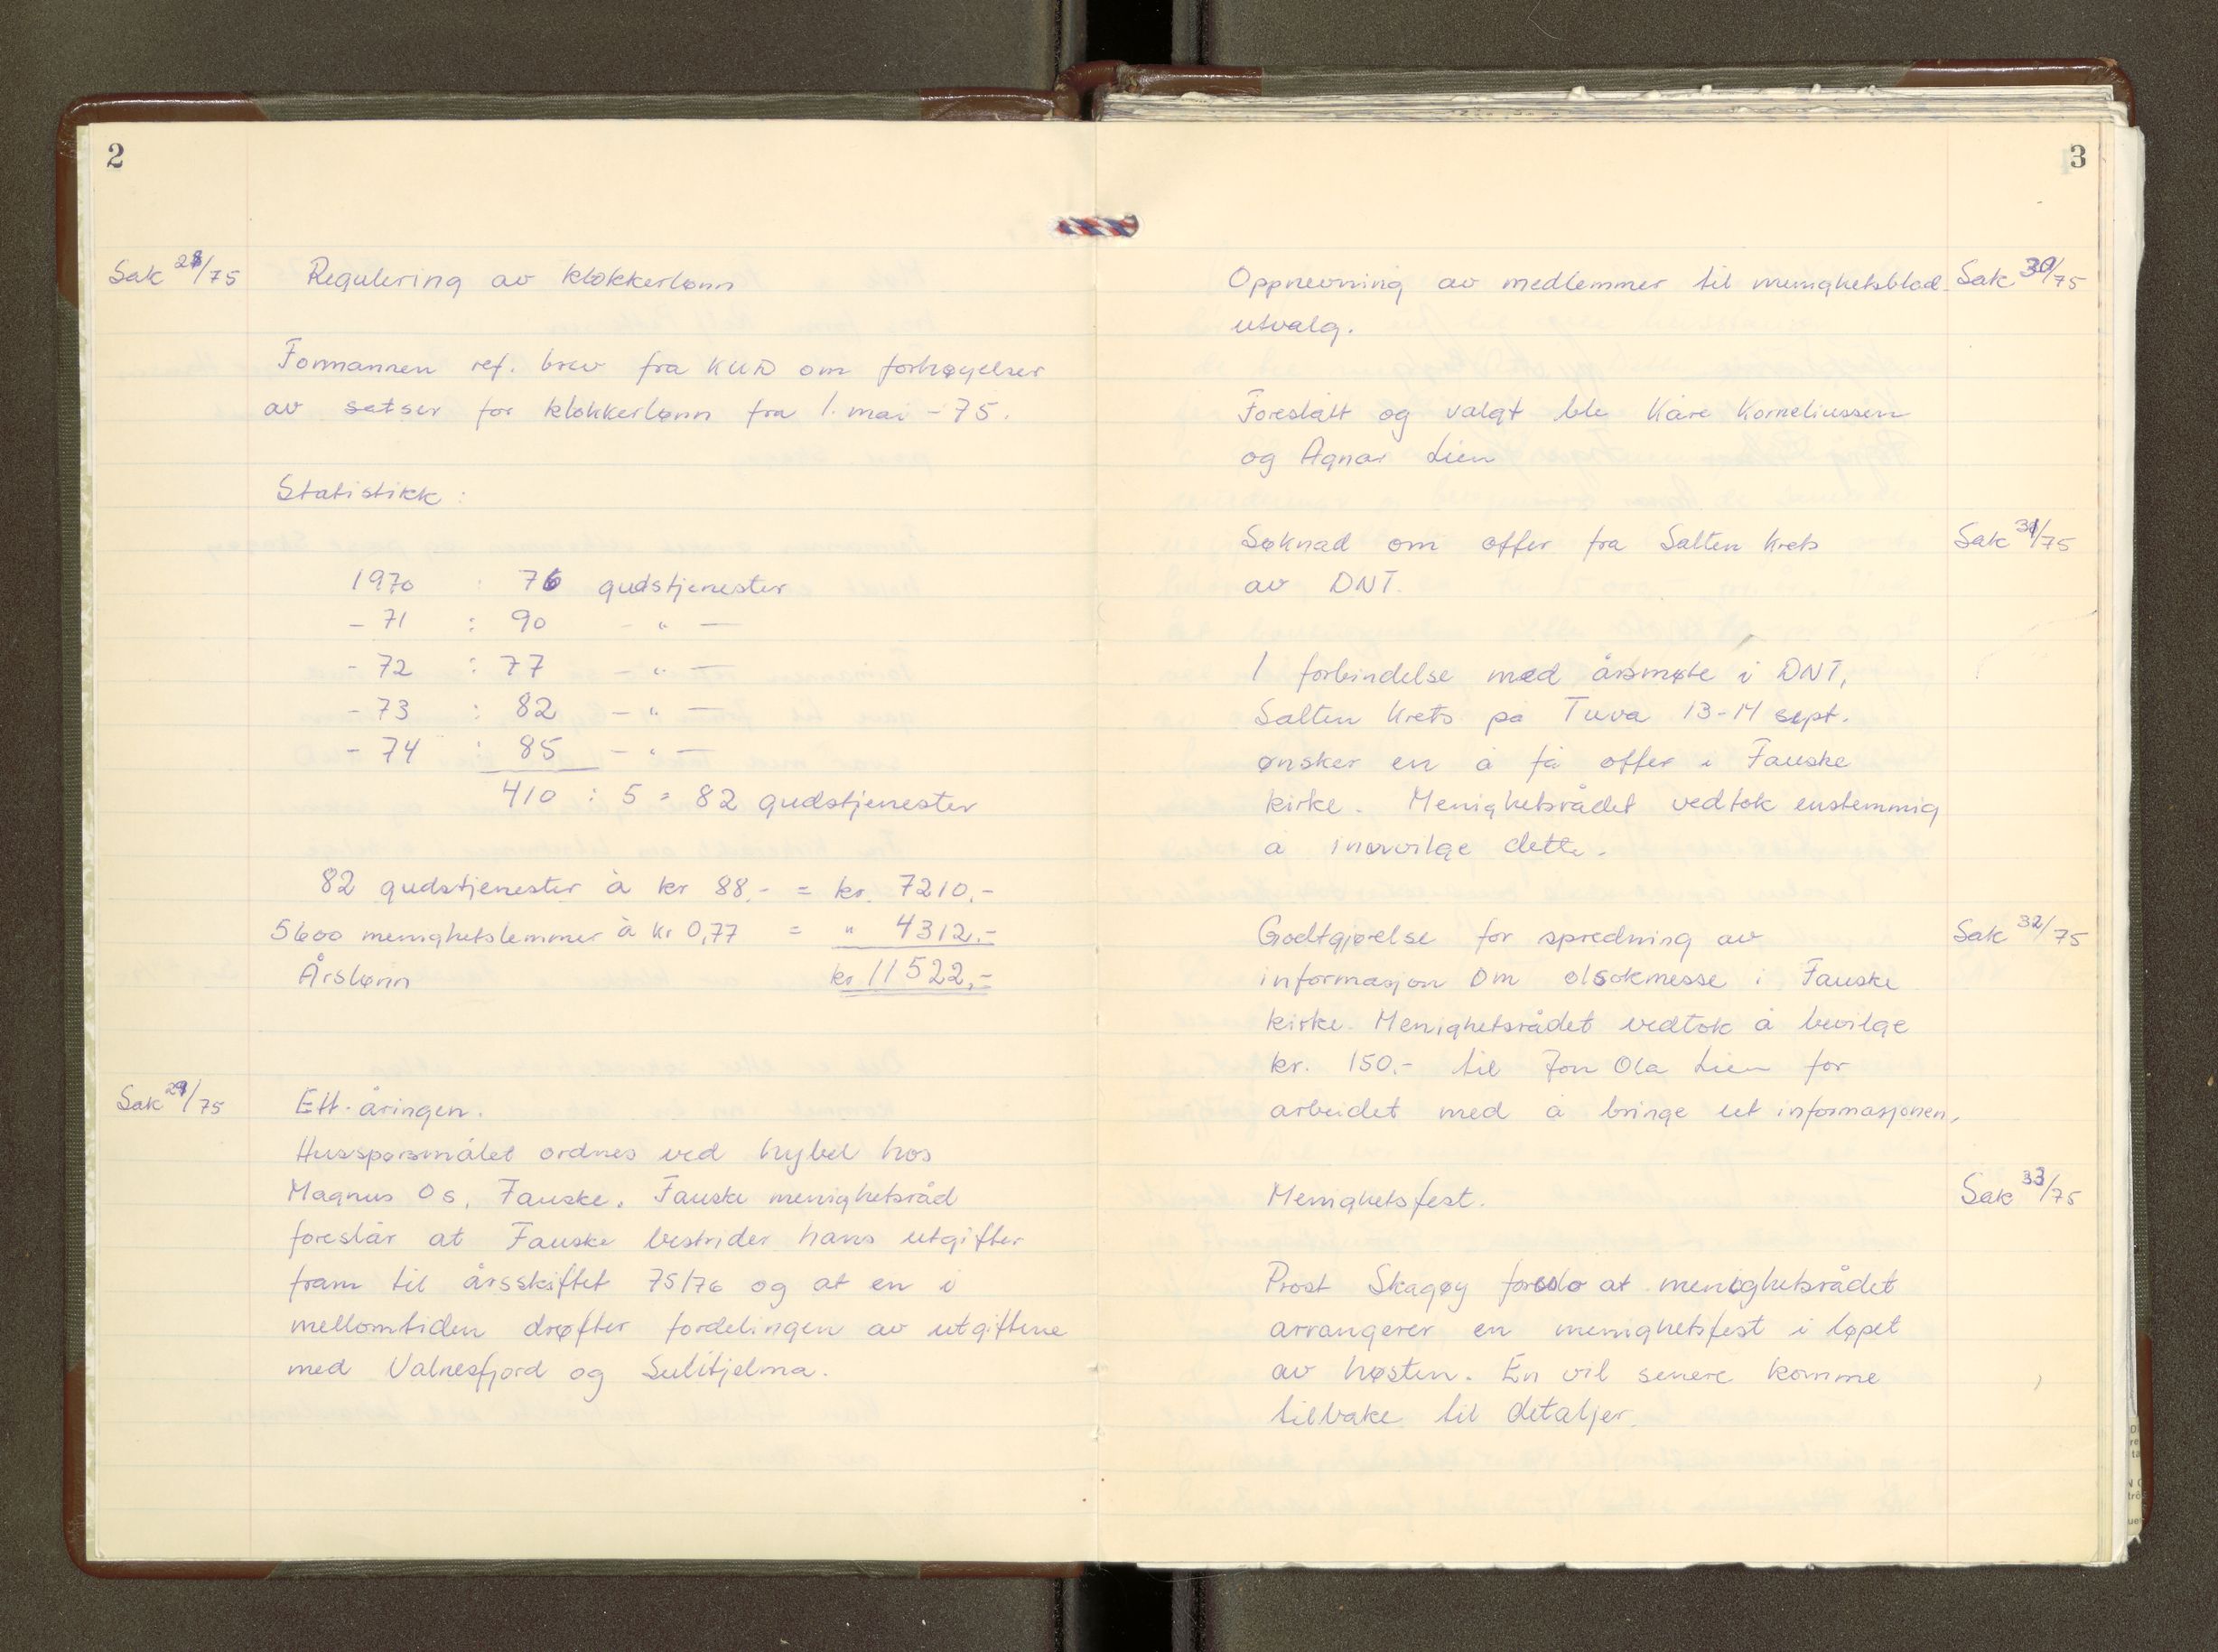 2
Sak 28/75
Regulering av klokkerlønn
Formannen ref. brev fra KUD om forhøyelser
av satser for klokkerlønn fra 1. mai -75.
Statistikk :
1970 : 76 gudstjenester
- 71 : 90 - " -
- 72 : 77 - " -
- 73 : 82 - " -
- 74 : 85 - " -
410 : 5 = 82 gudstjenester
82 gudstjenester à kr 88,- = kr. 7210,-
5600 menighetslemmer à kr 0,77 = " 4312,-
Årslønn kr 11522,-
Sak 29/75
Ett-åringen.
Husspørsmålet ordnes ved hybel hos
Magnus Os, Fauske. Fauske menighetsråd
foreslår at Fauske bestrider hans utgifter
fram til årsskiftet 75/76 og at en i
mellomtiden drøfter fordelingen av utgiftene
med Valnesfjord og Sulitjelma.
3
Oppnevning av medlemmer til menighetsblad-
Sak 30/75
utvalg.
Foreslått og valgt ble Kåre Korneliussen
og Agnar Lien
Søknad om offer fra Salten krets
Sak 31/75
av DNT.
I forbindelse med årsmøte i DNT,
Salten Krets på Tuva 13-14 sept.
ønsker en å få offer i Fauske
kirke. Menighetsrådet vedtok enstemmig
å innvilge dette.
Godtgjørelse for spredning av
Sak 32/75
informasjon om olsokmesse i Fauske
kirke. Menighetsrådet vedtok å bevilge
kr. 150.- til Jon Ola Lien for
arbeidet med å bringe ut informasjonen.
Menighetsfest.
Sak 33/75
Prost Skagøy foreslo at menighetsrådet
arrangerer en menighetsfest i løpet
av høsten. En vil senere komme
tilbake til detaljer.